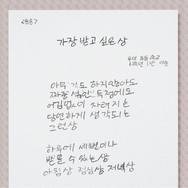 가장 받고 싶은 상
아무 것도 하지 않아도
짜증 섞인 투정에도
어김없이 차려지는
당연하게 생각되는
그런상
하루에 세번이나
받을 수 있는 상
아침상 점심상 저녁상